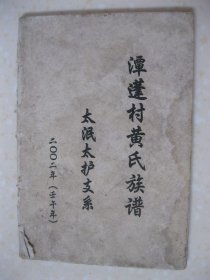 潭蓬村黄氏族谱
太泯太护支系
二〇〇二年（壬午年）